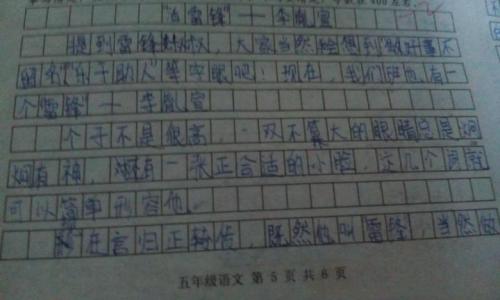 400左右。
"活雷锋"——李胤宣
提到雷锋,大家当然能想到"做好事不
留名""乐于助人"等字眼吧!现在,我们班也有一
个"雷锋"——李胤宣
个子不是很高,一双不算大的眼睛总是炯
炯有神,还有一张正合适的小脸,这几个词就
可以简单形容他。
现在言归正传,既然他叫雷锋,当然做
五年级语文 第 5 页 共 6 页